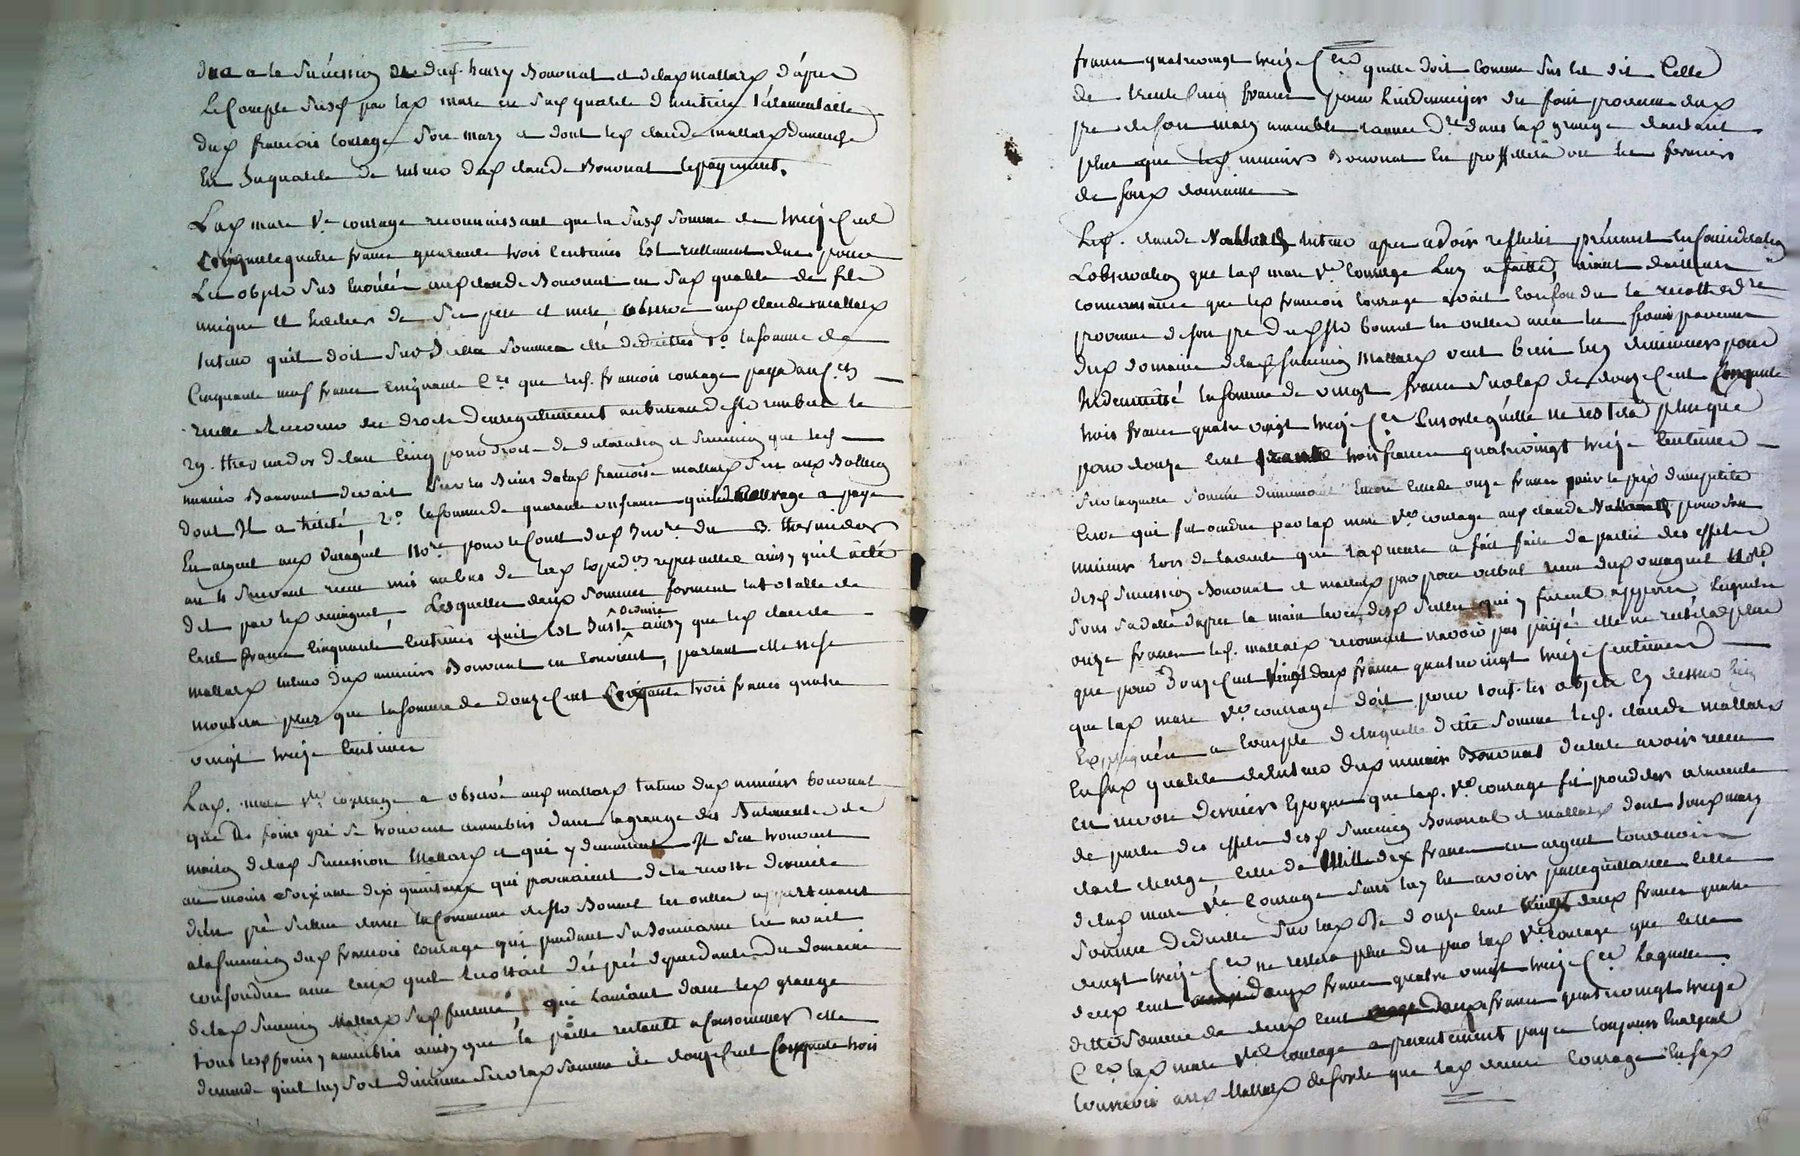 due a la succession dud. henry Bononat et delad mallard d'aprés
le Compte susd par lad mare en sad qualité d'heritiere testamentaire
dud francois Courage son mary et dont led claude mallard demande
En sa qualité de tuteur dud claude Bononat le payement.
Lad mare Ve courage reconnaissant que la susd somme de treize Cent
Cinquante quatre francs quarante trois centimes Est reellement due pour
les objets sus enoncés aud claude Bononat en sad qualité de fils
unique et heritier de ses pere et mere observe aud claude mallard
tuteur qu'il doit sur icelle somme etre dedüittes 1o la somme de
Cinquante neuf francs cinquante Ces que led. francois courage paya au Cen
receveur des droits d'enregistrement au bureau de le
29. thermidor de lan cinq pour droits de declaration et succession que led
mineur Bononat devait sur les Biens delad francoise mallard
dont Il a hérité, 2o la somme de quarante un francs qu'il a payé
En argent aud ouragnet Nore pour le Cout dud Invre du 3 thermidor
an 4 suivant recu mis au bas de led ainsy qu'il a été
dit par led ouragnet. Lesquelles deux sommes forment la totalle de
Cent francs Cinquante centimes qu'il Est Juste déduire ainsy que led claude
mallard tuteur dud mineur Bononat en Convient, partant elle ne se
montera plus que la somme de douze Cent Cinquante trois francs quatre
vingt treize Centimes
Lad. mare Ve courage a observé aud mallard tuteur dud mineur bononat
que les foins qui se trouvent ammeublis dans la grange des Batimens de
maison delad succession Mallard et qui y Il s'en trouvent
au moins soixante dix quintaux qui provenaient de la recolte derniere
d'un pré situé dans la Commune de ste Bonnet les oulles appartenant
a la succession dud francois courage qui pendant sa Jouissance les avait
confondu avec ceux quil recoltait des prés dependants du Domaine
delad succession Mallard susd qui l'aiant dans led grange
tous lesd foins y ammeublis ainsy que la paille restante a consommer elle
demande qu'il luy soit diminué sur lad somme de douze Cent Cinquante trois
francs quatrevingt treize Ces quelle doit comme sus est dit Celle
de trente cinq francs pour l'indemniser du foin provenu dud
pré de son mary ammeublé l'année dre dans lad grange d'autant
plus que led mineur Bononat En proffitera ou les fermiers
de sond domaine
Led. claude Mallard tuteur apres avoir reflechi prenant en Consideration
L'observation que lad mare Ve Courage Luy a faitte, aiant d'ailleurs
connaissance que led francois Courage avait confondu la recolte dre
provenue de son pré dud ste bonnet les oulles avec les foins provenus
dud domaine delad succession Mallard veut bien luy diminuer pour
Indemnité la somme de vingt francs sur lad de douze Cent Cinquante
trois francs quatre vingt treize Ces Ensorte qu'elle ne restera plus que
pour douze Cent trente trois francs quatrevingt treize Centimes
sur laquelle somme diminuant Encore celle de onze francs pour le prix d'une petite
cuve qui fut vendue par lad mare Ve courage aud claude Mallard pour son
mineur lors de la vente que lad veuve a fait faire de partie des effets
desd succession Bononat et mallard par proces verbal recu dud ouragnet Nore
sous sa datte d'apres la main levée desd scellés qui y furent apposés laquelle
onze francs led. mallard reconnait n'avoir pas payé elle ne restera plus
que pour Douze Cent vingt deux francs quatrevingt treize Centimes
que lad mare Ve courrage doit pour tous les objets cy dessus bien
Expliqués a Compte de laquelle ditte somme led. claude mallard
En sad qualité de tuteur dud mineur Bononat déclare avoir recu
en nivose dernier Epoque que lad. Ve courage fit proceder a la vente
de partie des effets desd succession Bononat et mallard dont sond mary
était chargé Celle de Mille dix francs en argent tournois
delad mare Ve Courage sans luy en avoir passé quittance Celle
somme deduitte sur lad de douze Cent vingt deux francs quatre
vingt treize Ces ne restera plus du par lad Ve Courage que Celle
deux Cent douze francs quatre vingt treize Ces Laquelle
ditte somme de deux Cent douze francs quatrevingt treize
Ces lad mare Ve courage a presentement payé toujours En argent
tournois aud Mallard de sorte que lad veuve Courage En sad